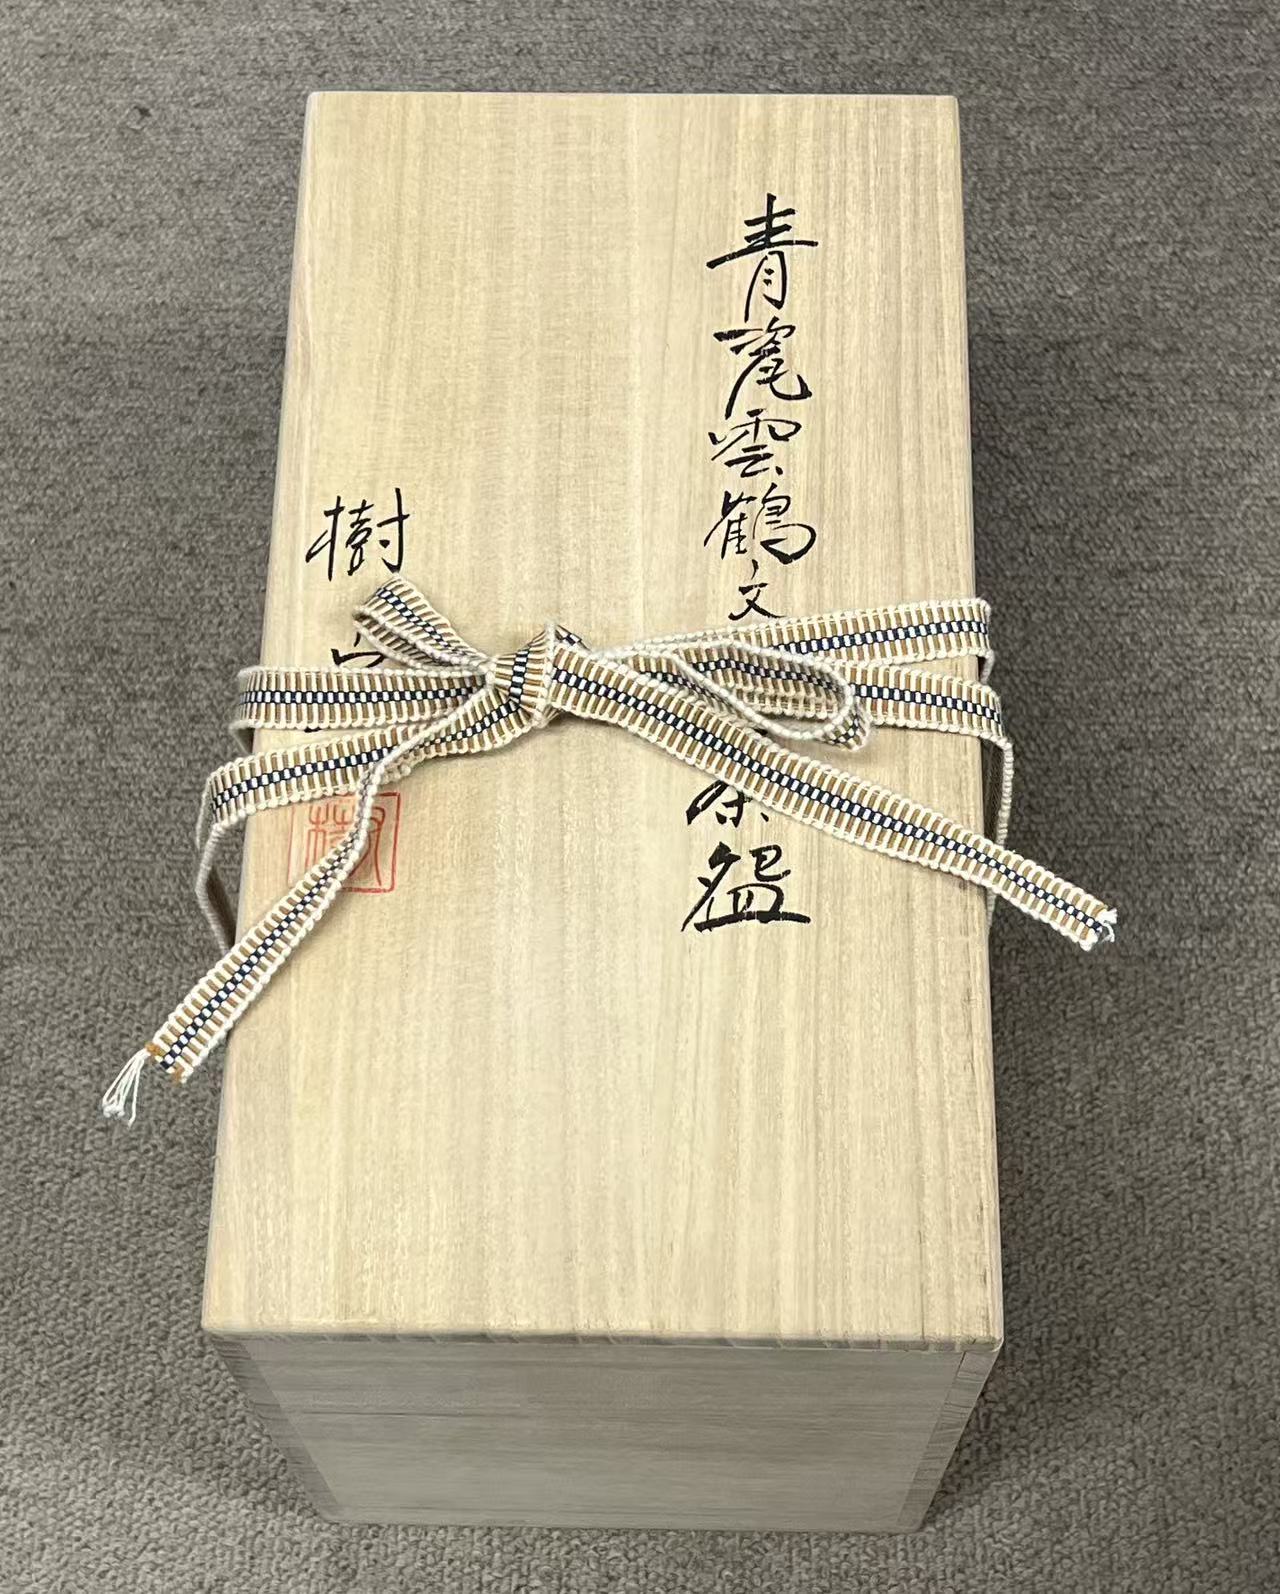 青瓷雲鶴文
茶盌
樹
樹